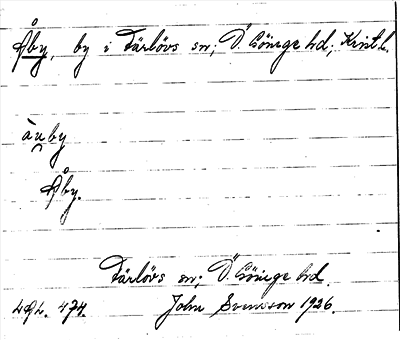 Åby, by i Färlövs sn; Ö. Göinge hd; Krist l.
åu̯by
Åby.
Färlövs sn; Ö. Göinge hd.
474. John Svensson 1926.